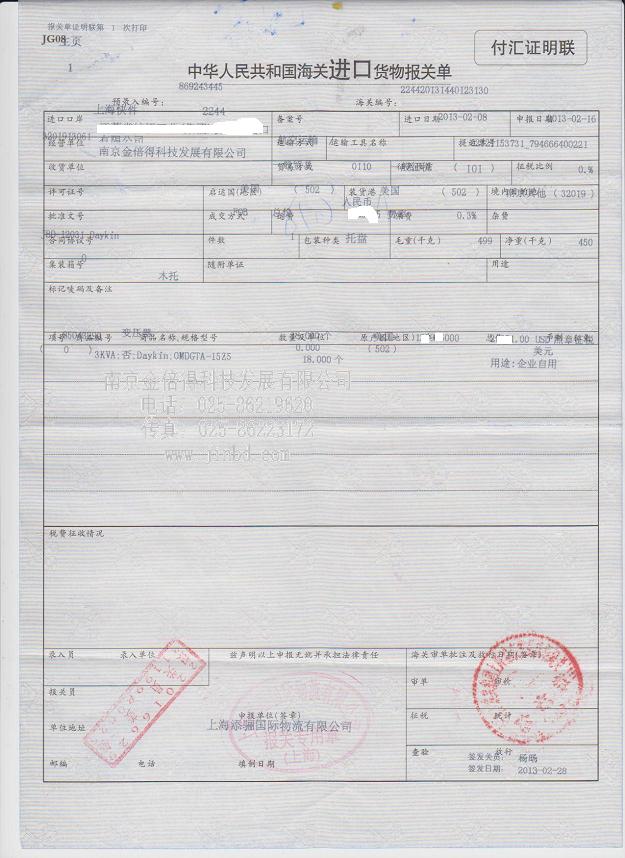 报关单证明联第 1 次打印
JG08
主页
付汇证明联
1
中华人民共和国海关进口货物报关单
869243445
预录入编号:
海关编号:
224420131440123130
上海快件 2244
进口口岸
备案号
进口日期2013-02-08
申报日期2013-02-16
经营单位
南京金倍得科技发展有限公司
运输方式
运输工具名称
提运单号
_794666400221
收货单位
贸易方式 0110
(101)
征税比例 0.%
许可证号
启运国(地区)
(502)
装货港 美国 (502)
境内目的地
(32019)
人民币
批准文号
成交方式 FOB
运费
0.3%
杂费
JBD-12031 Daykin
合同协议号
件数 1
包装种类 托盘
毛重(千克) 499
净重(千克) 450
0
集装箱号
木托
随附单证
用途
标记唛码及备注
变压器
项号 商品编号
商品名称,规格型号
数量及单位
原产国(地区)
USD 照章征税
( 0 )
3KVA;否;Daykin;OMDGTA-15Z5
0.000
18.000 个
(502)
美元
用途:企业自用
南京金倍得科技发展有限公司
电话: 025-86219620
传真: 025-86223172
www.jinbd.com
税费征收情况
录入员
录入单位
兹声明以上申报无讹并承担法律责任
海关审单批注及放行日期(签章)
报关员
审单
审价
申报单位(签章)
征税
统计
单位地址
上海添骊国际物流有限公司
报关专用章
(上海)
查验
放行
邮编
电话
填制日期
签发关员: 杨旸
签发日期: 2013-02-28